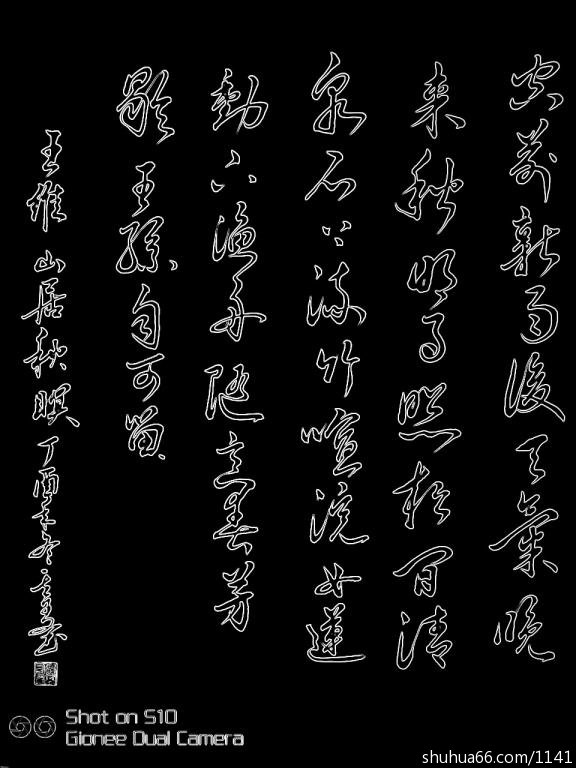 空新雨後天氣晚
来秋明月照松間清
泉石上流竹喧浣女蓮
動下漁舟随意春芳
歇王孫自可留
王維 山居秋暝 丁酉年冬
Shot on S10
Gionee Dual Camera
shuhua66.com/1141